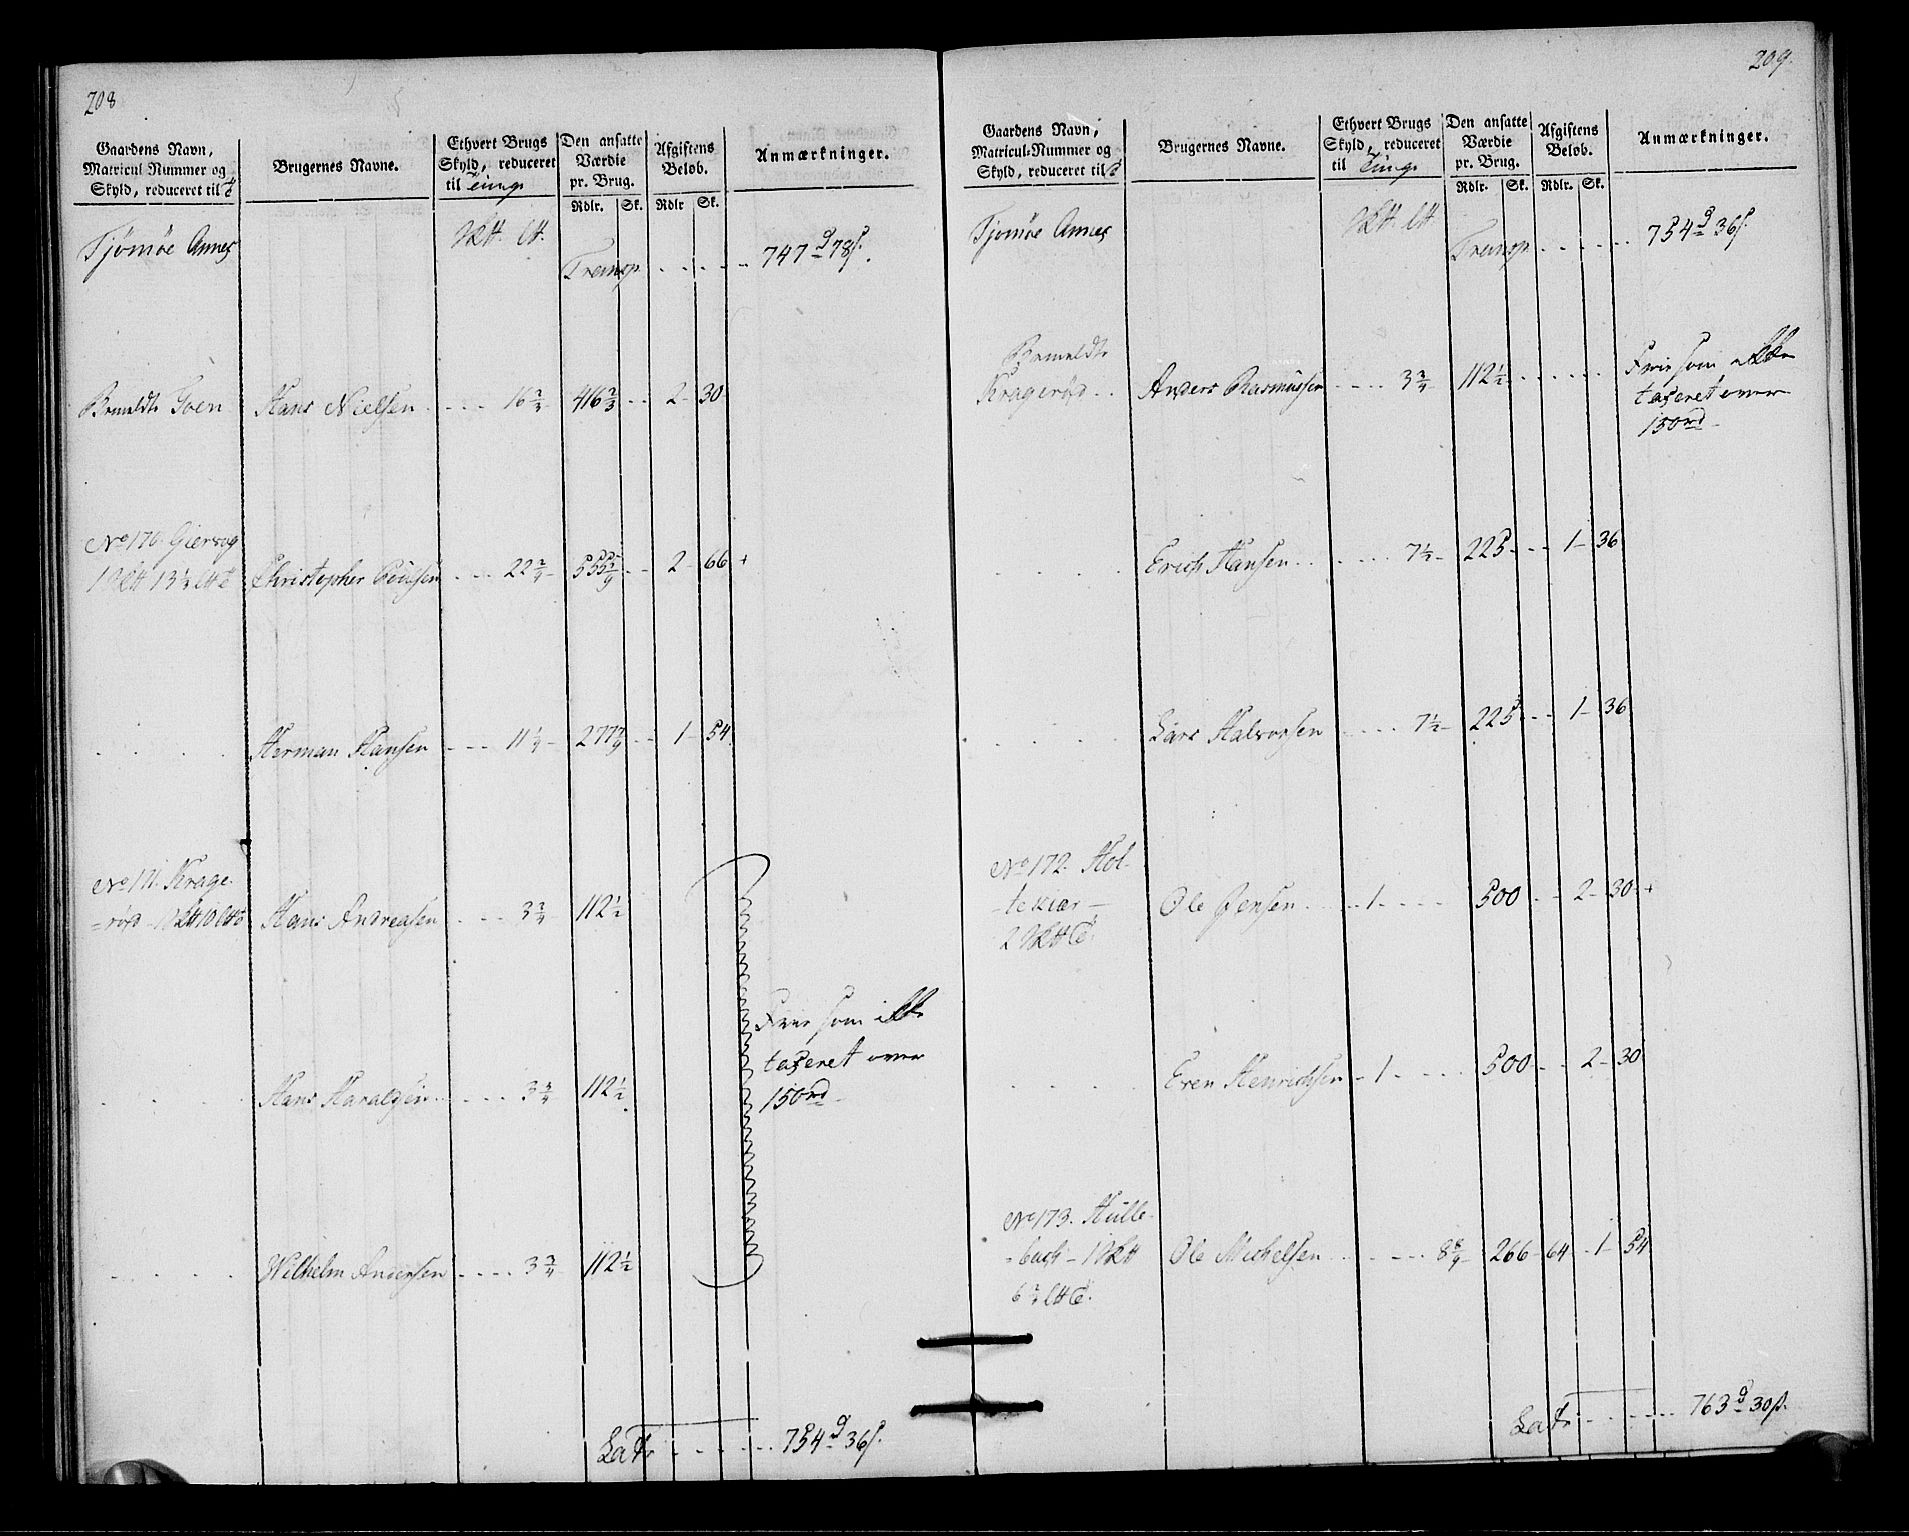 208
Gaardens Navn, Matricul Nummer og Skyld, reduceret til
Brugernes Navne.
Ethvert Brugs Skyld, reduceret til Tunge
Den ansatte Værdie pr. Brug.
Rdlr. Sk.
Afgiftens Beløb.
Rdlr Sk.
Anmærkninger.
Tjømøe Annex
Transp. . . . . . 747 d 78 s.
Bemeldte Soen Hans Nielsen . . . . 16 2/3 - 416 2/3 . . 2 - 30
No 176. Giervog
Christopher Poulsen . . . 22 2/9 - 555 5/9 . . 2 - 66 +
. . . . Herman Hansen . . . 11 1/9 - 277 7/9 . . 1 - 54.
No 171. Krage-
=rød Hans Andreasen . . . . 3 3/4 - 112 1/2
. . . . Hans Haralsen . . . . 3 3/4 - 112 1/2
Frie som ikke
taxeret over
150 rd -
. . . . Wilhelm Andersen . . . . 3 3/4 - 112 1/2
Latr . . . . . . 754 d 36 s.
209.
Gaardens Navn, Matricul-Nummer og Skyld, reduceret til
Brugernes Navne.
Ethvert Brugs Skyld, reduceret til Tunge
Den ansatte Værdie pr. Brug.
Rdlr. Sk.
Afgiftens Beløb.
Rdlr. Sk.
Anmærkninger.
Tjømøe Annex
Transp. . . . . . 754 d 36 s.
Bemeldte
Kragerød . . Anders Rasmussen . . . . 3 3/4 - 112 1/2 . . . . . .
Frie som ikke
taxeret over
150 rd -
. . . . Erich Hansen . . . . . 7 1/2 - 225 - . . 1 - 36
. . . . Lars Halvorsen . . . . 7 1/2 - 225 - . . 1 - 36
No 172. Hol-
-tekiær - Ole Jensen . . . . 1 - . . . . 500 . . 2 - 30 +
. . . . Even Henrichsen - 1 - . . . . 500 - . . 2 - 30
No 173. Hülle-
=bach - Ole Michelsen . . . . . 8 8/9 - 266 - 64 . 1 - 54
Latr . . . . . . 763 d 30 s.